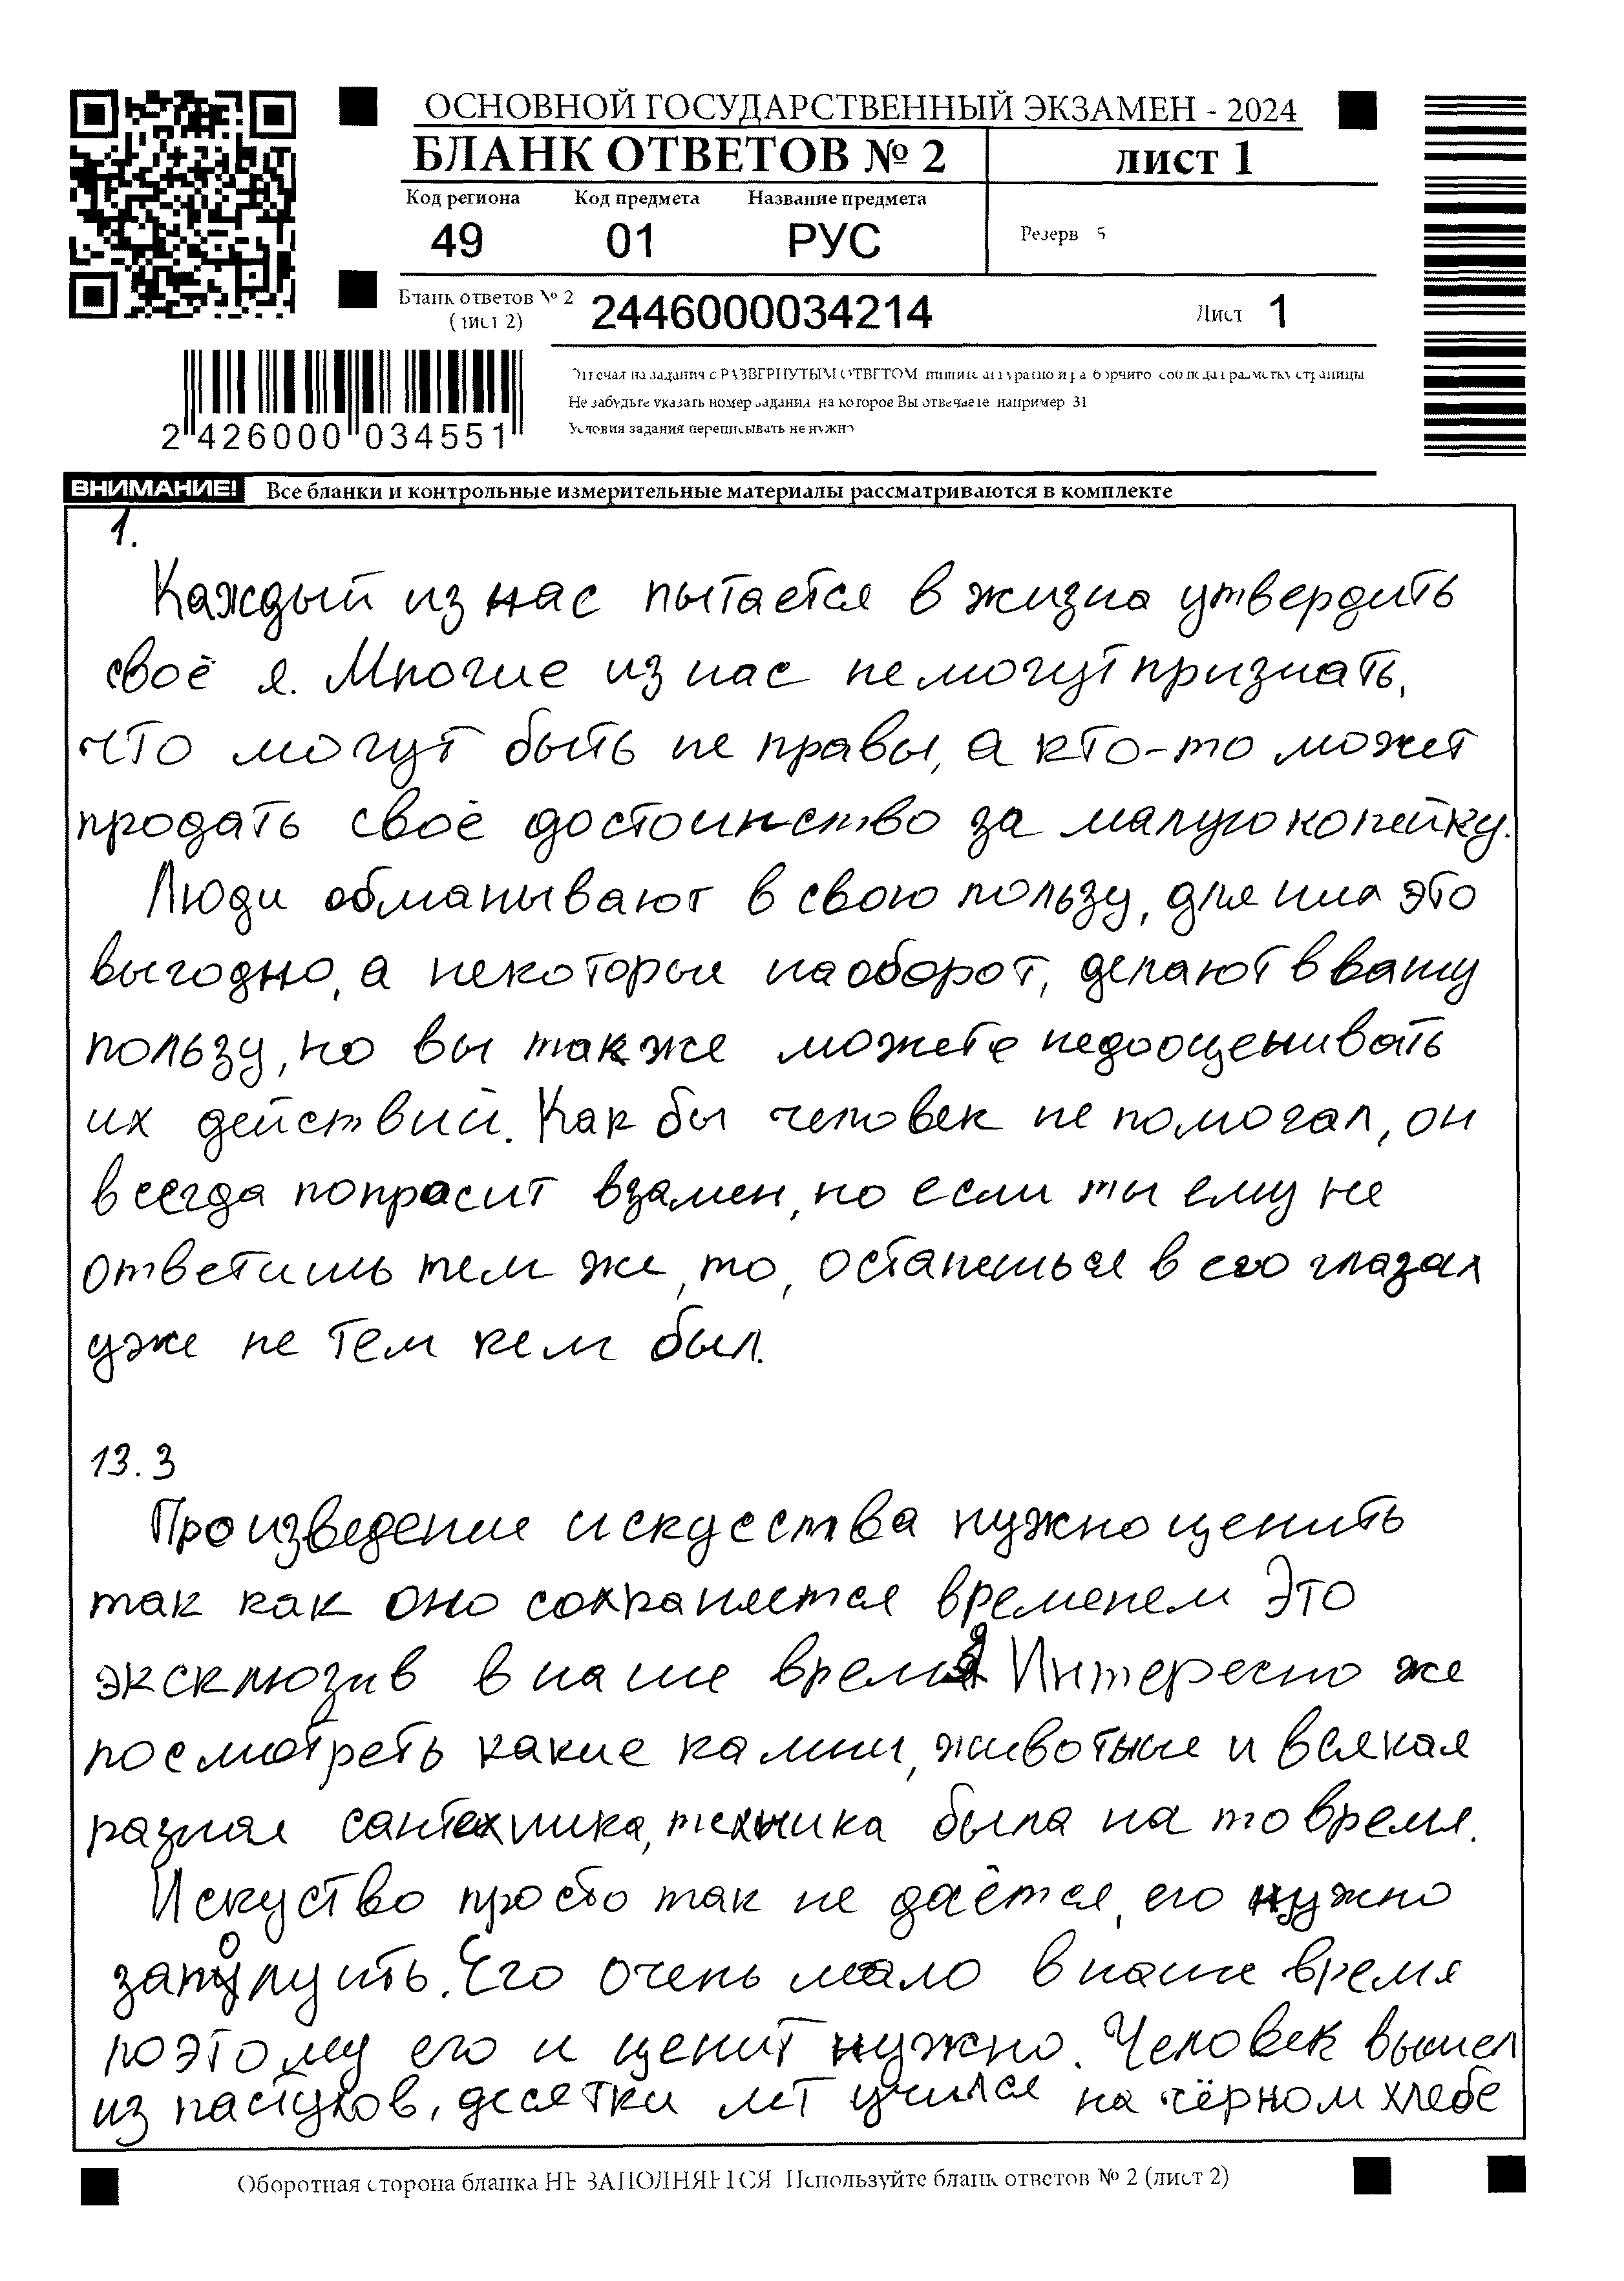 ОСНОВНОЙ ГОСУДАРСТВЕННЫЙ ЭКЗАМЕН - 2024
БЛАНК ОТВЕТОВ № 2
ЛИСТ 1
Код региона Код предмета Название предмета
49 01 РУС
Резерв 5
Бланк ответов № 2
(лист 2)
2446000034214
Лист 1
2 426000 034551
Отвечая на задания с РАЗВЕРНУТЫМ ОТВЕТОМ, пишите аккуратно и разборчиво, соблюдая разметку страницы
Не забудьте указать номер задания, на которое Вы отвечаете, например 31
Условия задания переписывать не нужно
ВНИМАНИЕ! Все бланки и контрольные измерительные материалы рассматриваются в комплекте
1.
Каждый из нас пытается в жизна утвердить
своё я. Многие из нас не могут признать,
что могут быть не правы, а кто-то может
продать своё достоинство за малую копейку.
Люди обманывают в свою пользу, для них это
выгодно, а некоторые наоборот, делают в вашу
пользу, но вы также можете недооценивать
их действий. Как бы человек не помогал, он
всегда попросит взамен, но если ты ему не
ответишь тем же, то, останешься в его глазах
уже не тем кем был.
13.3
Произведение искусства нужно ценить
так как оно сохраняется временем Это
эксклюзив в наше время Интересно же
посмотреть какие камни, животные и всякая
разная сантехника, техника была на то время.
Искуство просто так не даётся, его нужно
заполучить. Его очень мало в наше время
поэтому его и ценит нужно. Человек вышел
из пастухов, десятки лет учился на чёрном хлебе
Оборотная сторона бланка НЕ ЗАПОЛНЯЕТСЯ Используйте бланк ответов № 2 (лист 2)